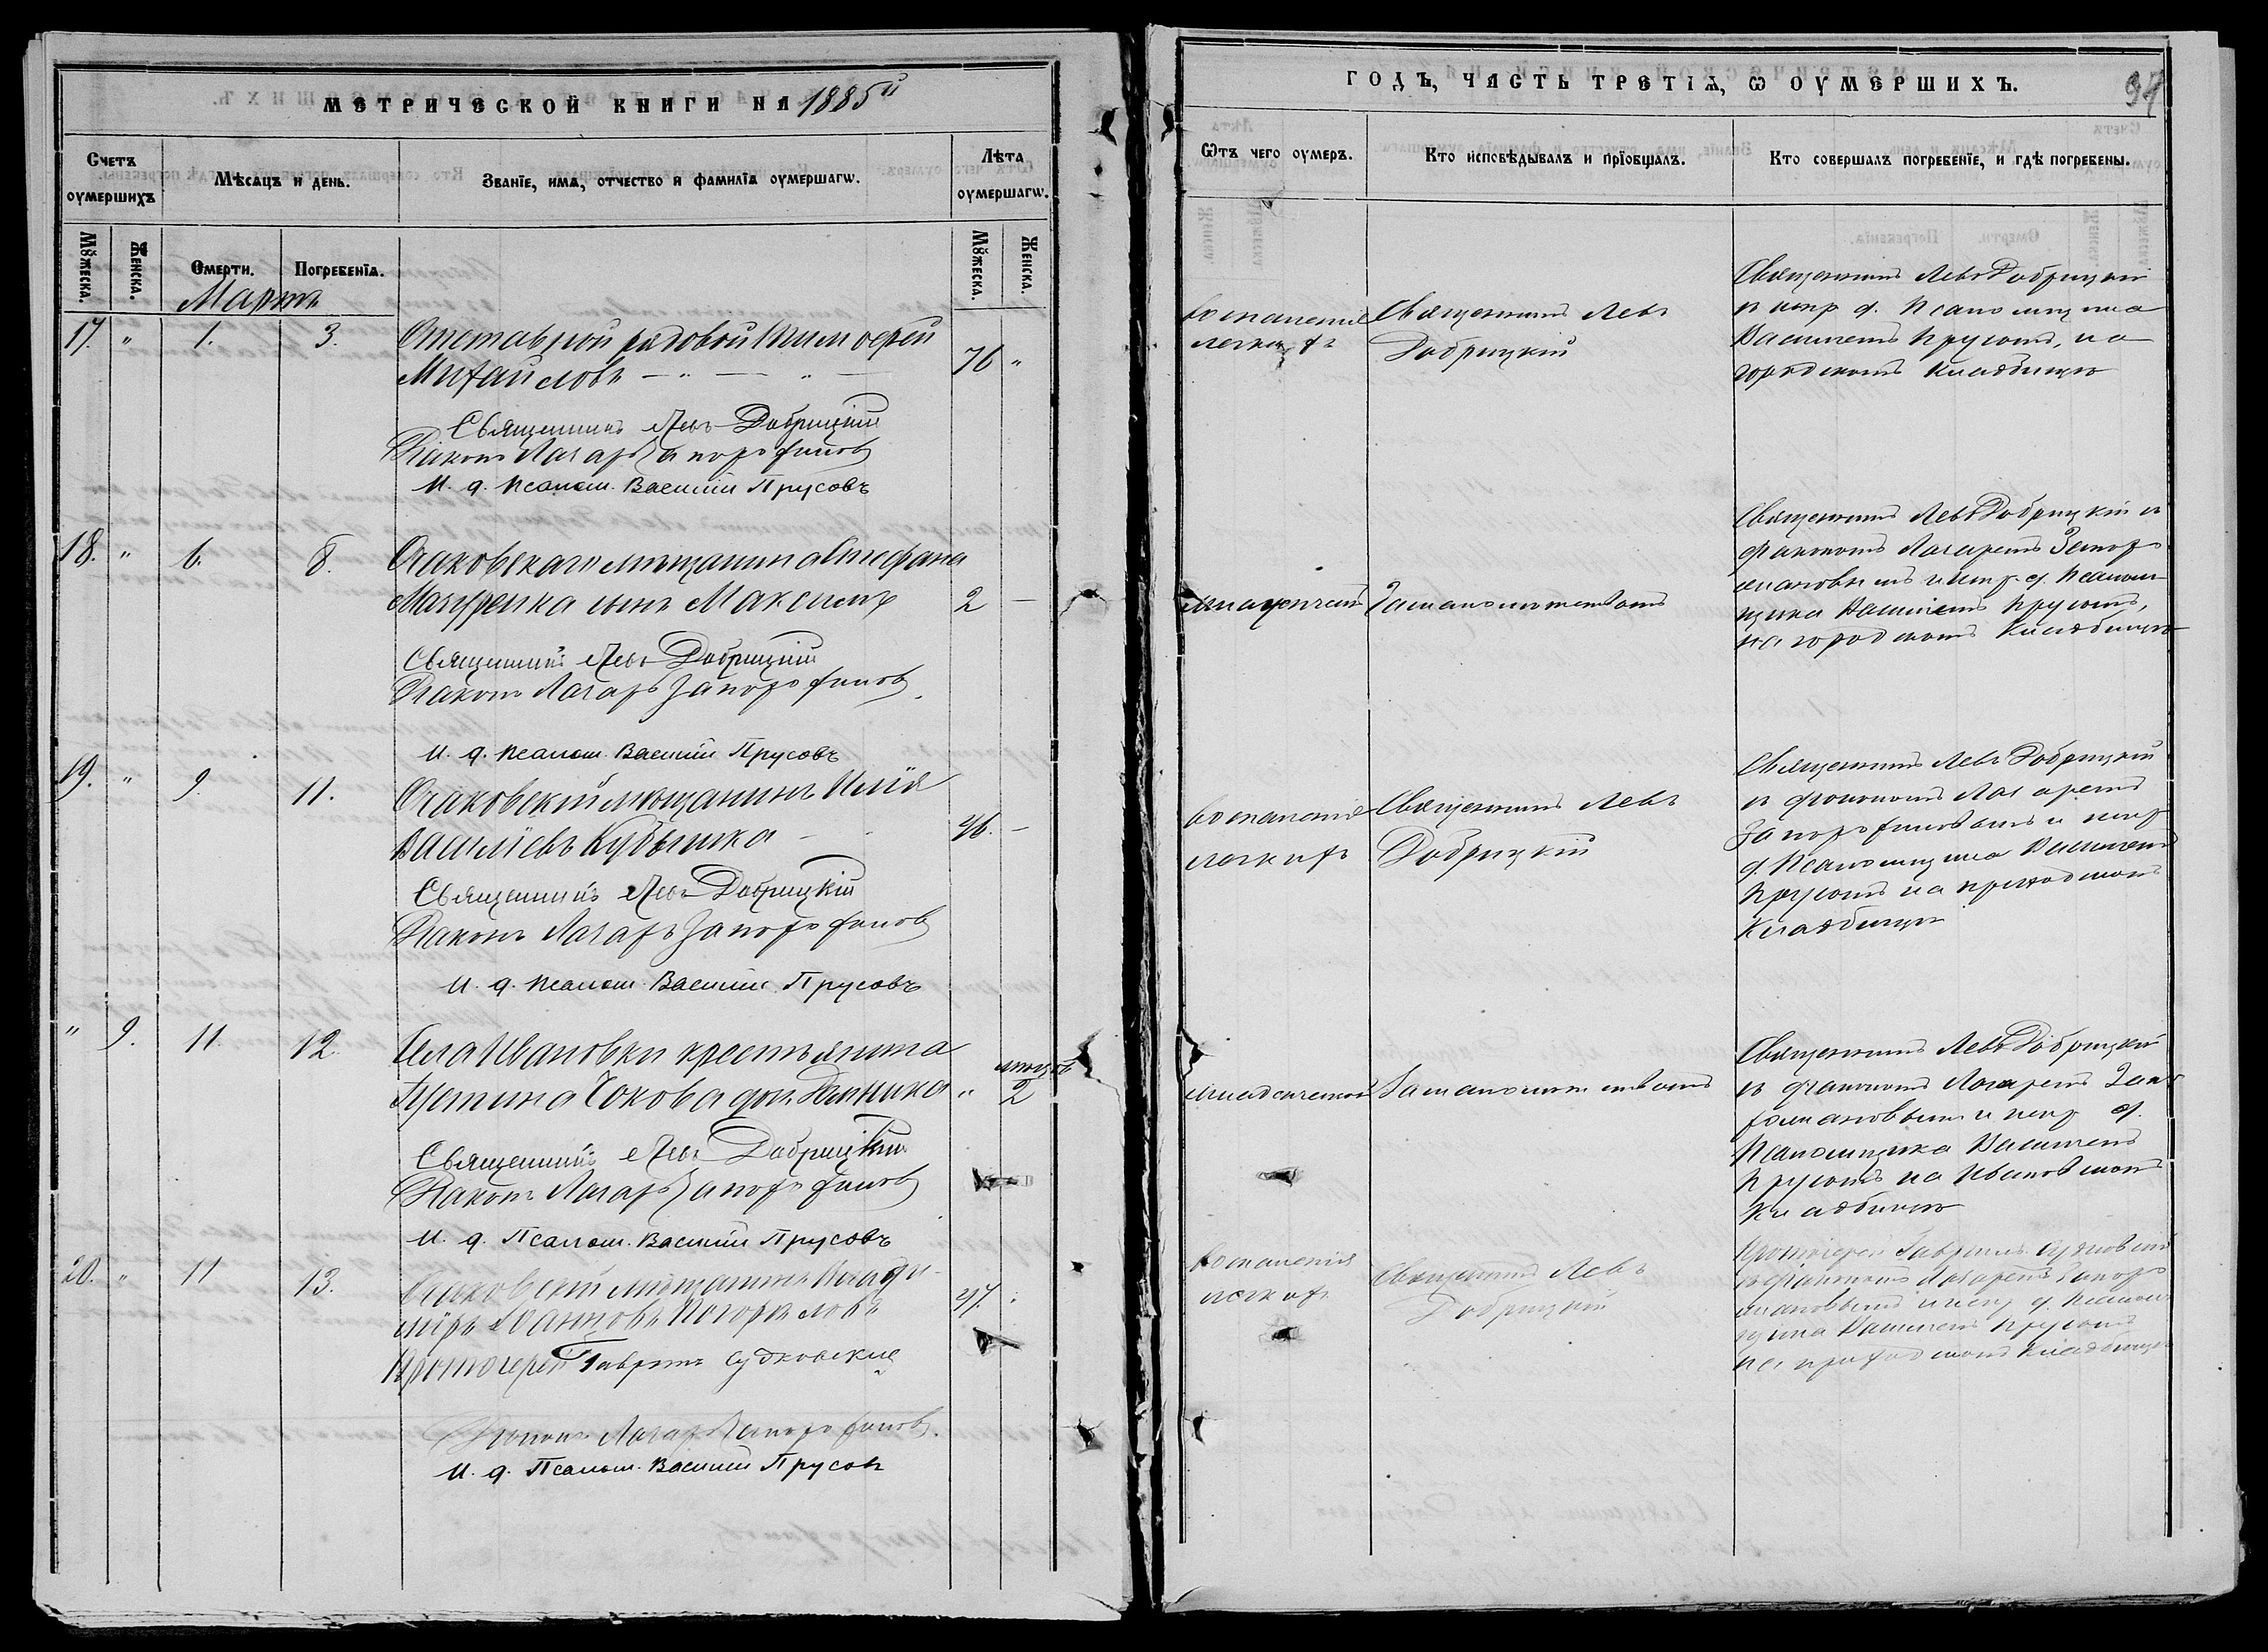 МЕТРИЧЕСКОЙ КНИГИ НА 1885й
Счетъ оумершихъ
Мѣсяцъ и день.
Званіе, имя, отчество и фамилія оумершагѡ.
Лѣта оумершагѡ.
Мꙋжеска.
Женска.
Смерти.
Погребенія.
Мꙋжеска.
Женска.
Марта
17. " 1. 3. Отставной рядовой Тимофей
Михайловъ — " — " — 76 "
Священникъ Левъ Добрицкій
Діаконъ Лазарь Запорожановъ
И. д. псалом. Василій Прусовъ
18. " 6. 8. Очаковскаго мѣщанина Стефана
сынъ Максимъ 2 —
Священникъ Левъ Добрицкій
Діаконъ Лазарь
И. д. псалом. Василій Прусовъ
19. " 9. 11. Очаковскій мѣщанинъ Илія
Василіевъ Кубышка — 46. —
Священникъ Левъ Добрицкій
Діаконъ Лазарь
И. д. псалом. Василій Прусовъ
" 9. 11. 12. Села Ивановки крестьянина
Устина дочь " 2
Священникъ Левъ Добрицкій
Діаконъ Лазарь
И. д. Псалом. Василій Прусовъ
20. " 11 13. Очаковскій мѣщанинъ Влади-
міръ Іоанновъ Погорѣловъ 47.
Протоіерей Гавріилъ Судковскій
Діаконъ Лазарь
И. д. Псалом. Василій Прусовъ
ГОДЪ, ЧАСТЬ ТРЕТІЯ, Ѡ ОУМЕРШИХЪ.
Ѿтъ чего оумеръ.
Кто исповѣдывалъ и пріобщалъ.
Кто совершалъ погребеніе, и гдѣ погребены.
воспаленіе
легкихъ
Священникъ Левъ
Добрицкій
Священникъ Левъ Добрицкій
и испр. д. псаломщика
Василіемъ Прусовъ, на
городскомъ кладбищѣ
младенчест. За малолѣтствомъ
Священникъ Левъ Добрицкій и
діакономъ Лазаремъ Запор
жановымъ и испр. д. псалом-
щика Василіемъ Прусовъ,
на городскомъ кладбищѣ
воспаленіе
легкихъ
Священникъ Левъ
Добрицкій
Священникъ Левъ Добрицкій
и діакономъ Лазаремъ
и испр
д. псаломщика Василіемъ
Прусовъ на приходскомъ
кладбищѣ
За малолѣтствомъ
Священникъ Левъ Добрицкій
и діакономъ Лазаремъ Запо
и испр д.
псаломщика Василіемъ
Прусовъ на Ивановскомъ
кладбищѣ
воспаленія
легкихъ
Священникъ Левъ
Добрицкій
Протоіерей Гавріилъ Судковскій
и діакономъ Лазаремъ Запор
и испр д. псалом
щика Василіемъ Прусовъ
на приходскомъ кладбищѣ